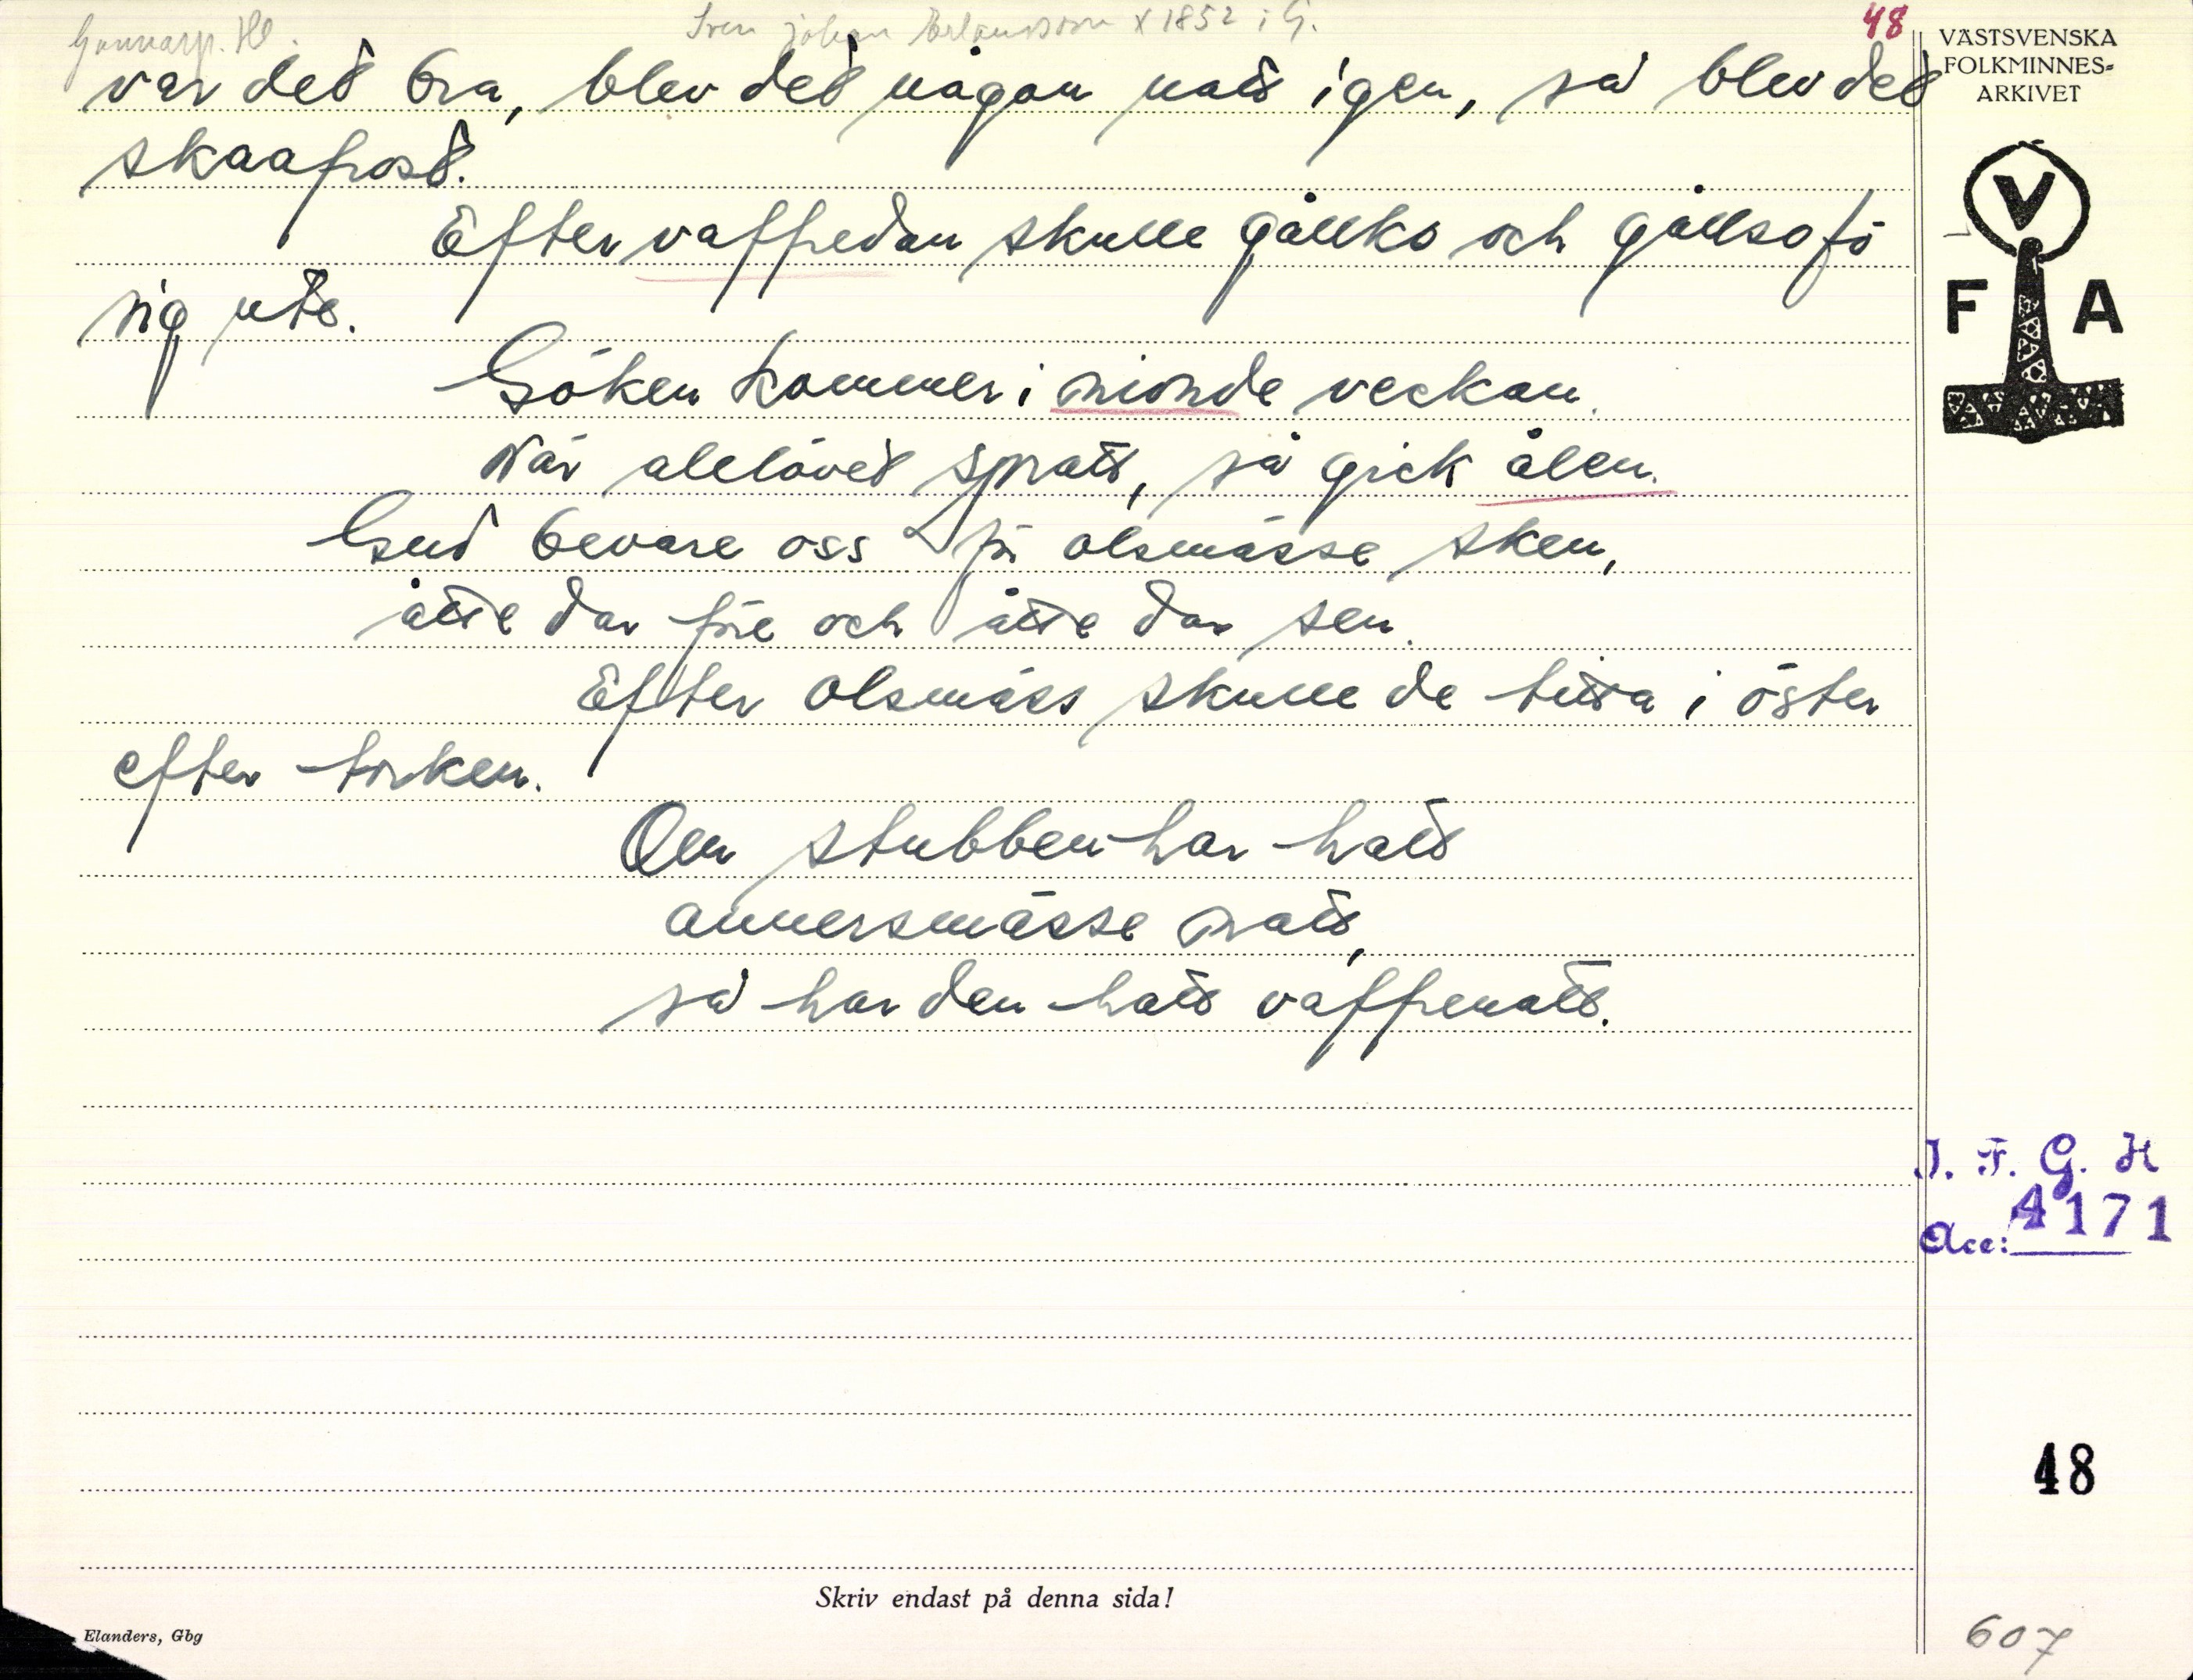 Gunnarp. Hl. Sven Johan Erlandsson x 1852 i G. 48
var det bra, blev det någon natt igen, så blev det
skaafrost.
Efter vaffredan skulle gållko och gållso fö
sig ute.
Göken kommer i nionde veckan.
När alelövet spratt, så gick ålen.
Gud bevare oss för olsmässe sken,
åtte dar före och åtte dar sen.
Efter olsmäss skulle de titta i öster
efter torken.
Om stubben har hatt
annersmässe natt,
så har den hatt vaffrenatt.
VÄSTSVENSKA
FOLKMINNES-
ARKIVET
V
F A
I. F. G. H
Acc: 4171
48
Skriv endast på denna sida!
Elanders, Gbg
607